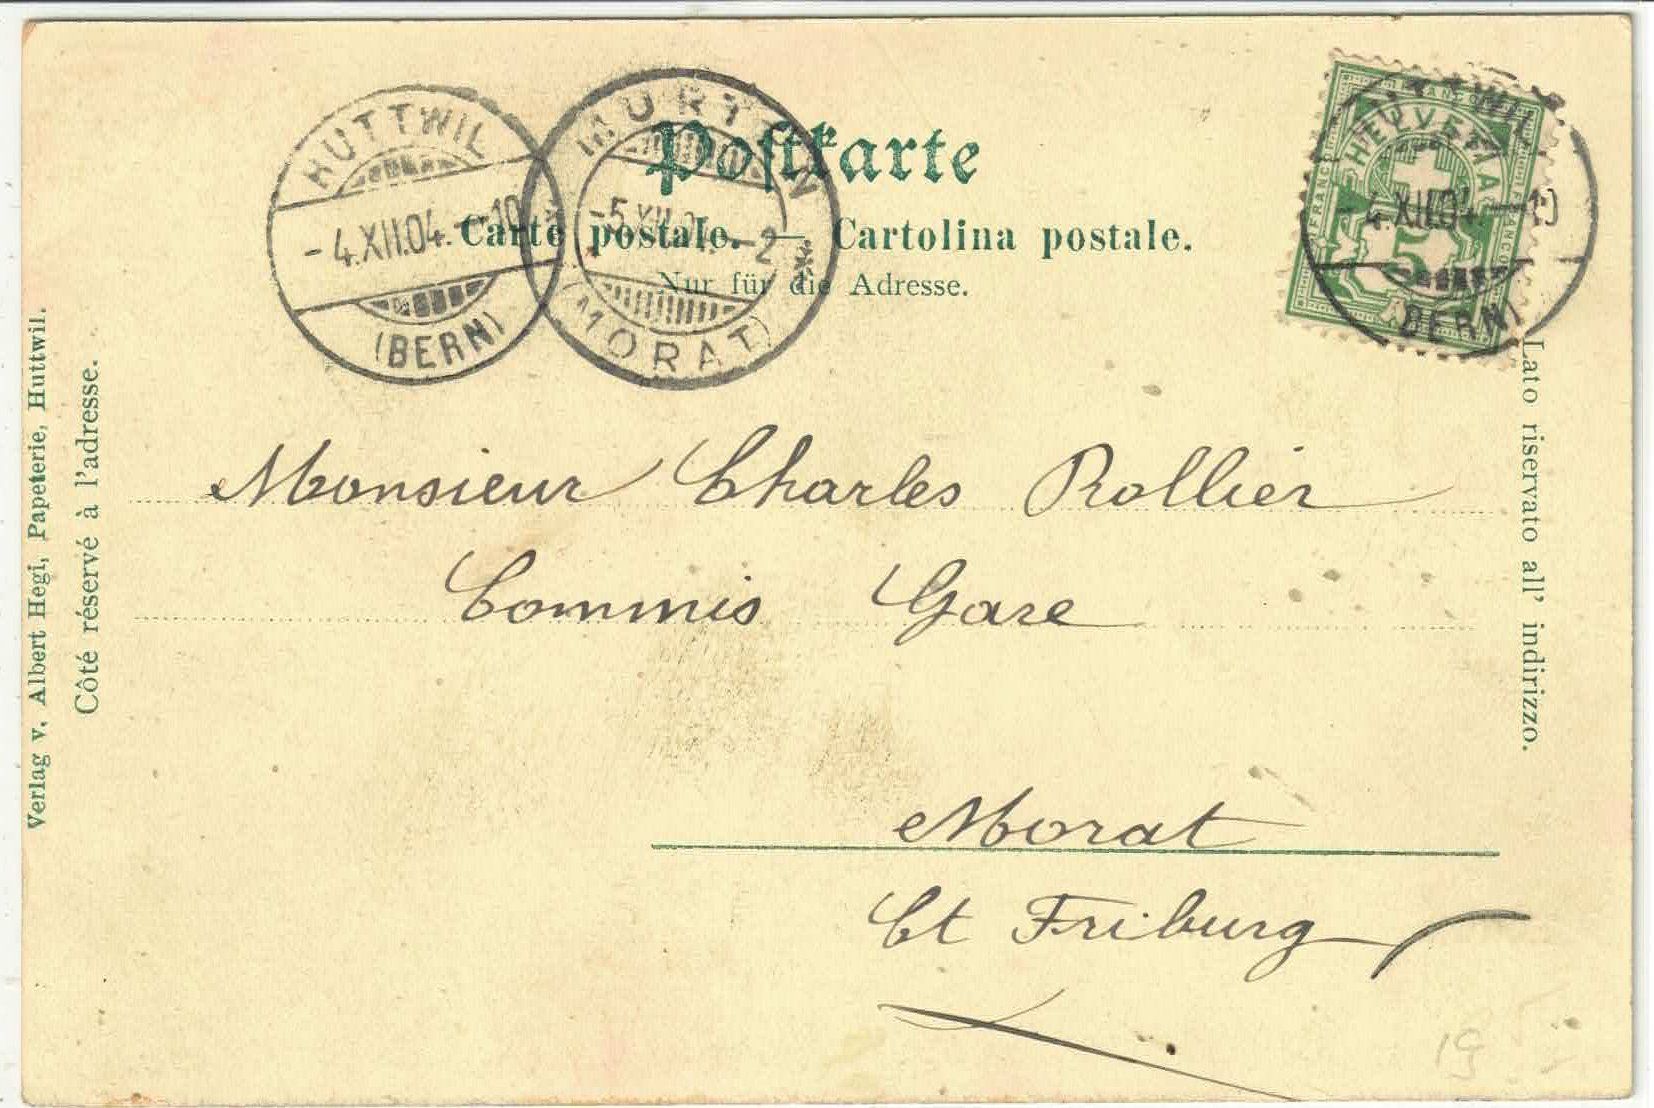 HUTTWIL
-4.XII.04.-10
(BERN)
MURTEN
-5.XII.04.-2
(MORAT)
Postkarte
Carte postale. — Cartolina postale.
Nur für die Adresse.
HUTTWIL
-4.XII.04.-10
(BERN)
HELVETIA
FRANCO
FRANCO
FRANCO
5
Verlag v. Albert Hegi, Papeterie, Huttwil.
Côté réservé à l'adresse.
Lato riservato all' indirizzo.
Monsieur Charles Rollier
Commis Gare
Morat
Ct Friburg
19